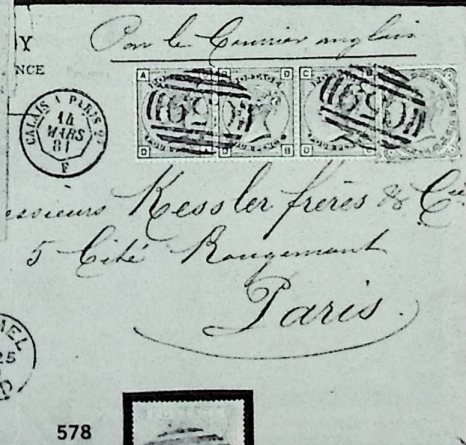 Y
NCE
Par le Courrier anglais
CALAIS A PARIS 2°
14
MARS
81
F
A
D
D
B
C
D
C69
essieurs Kessler frères & Cie
5 Cité Rougemont
Paris.
25
578